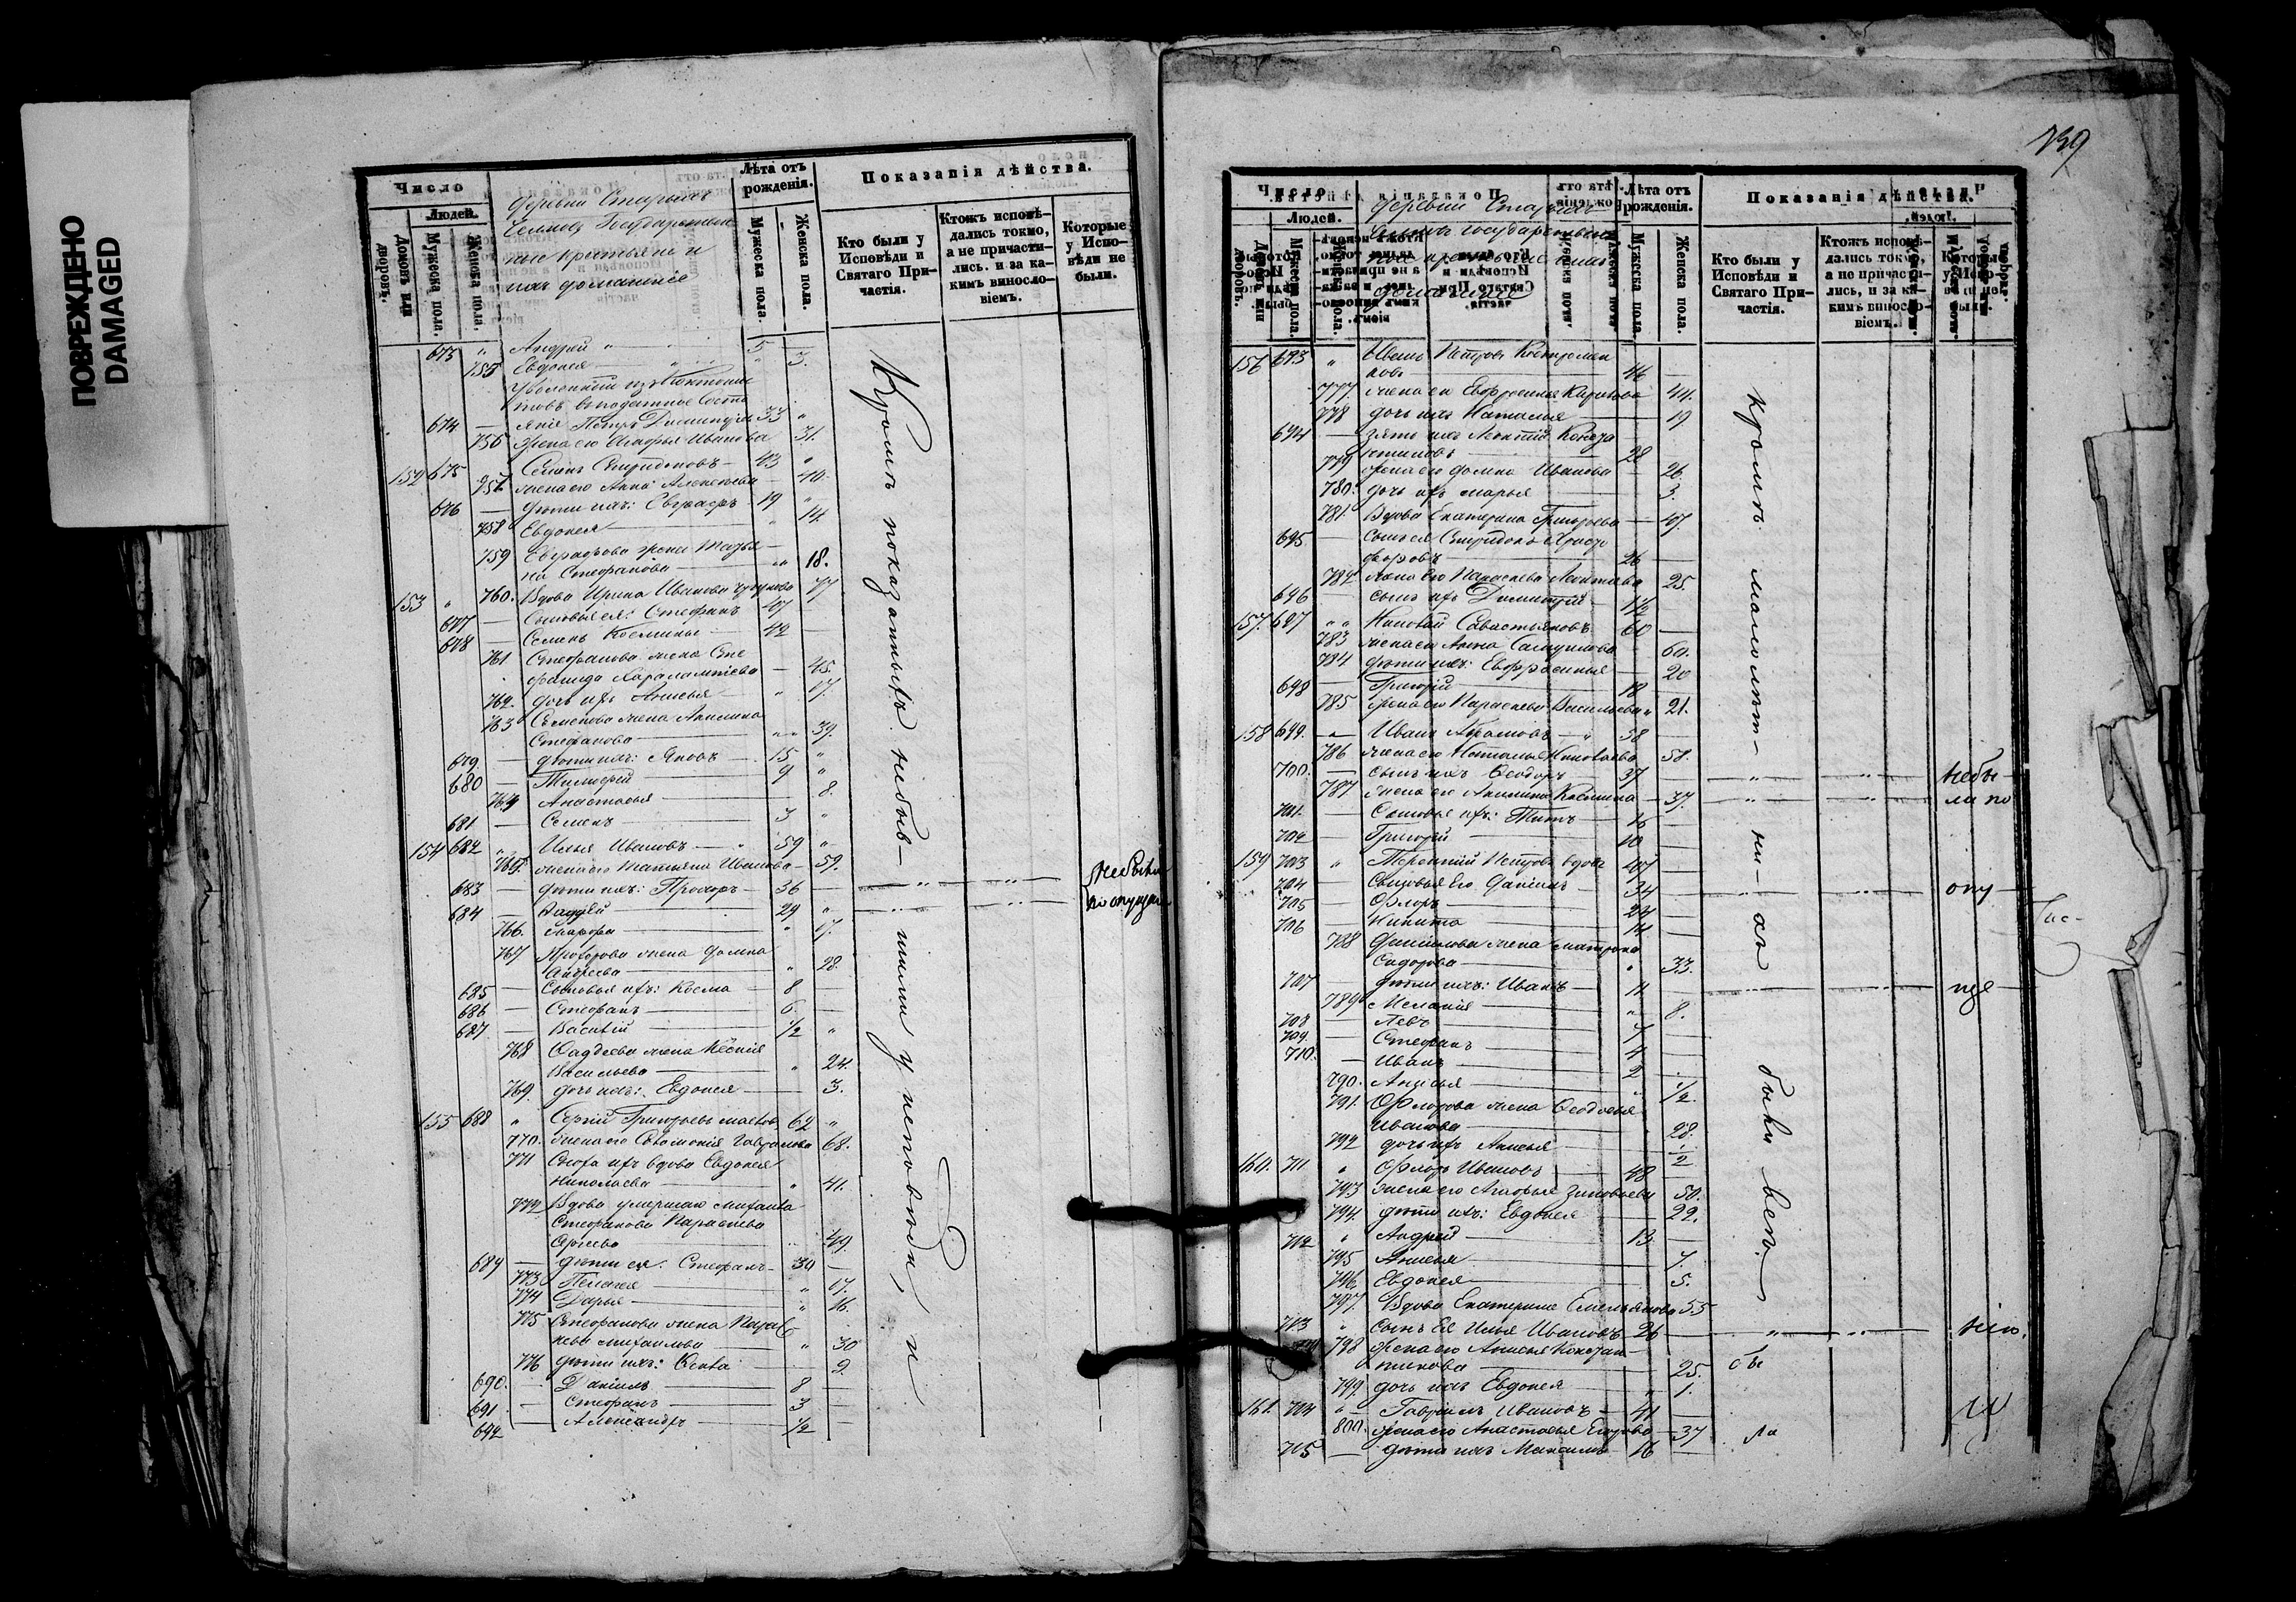 ПОВРЕЖДЕНО
DAMAGED
Число
Людей.
Домовъ или дворовъ.
Мужеска пола.
Женска пола.
Деревни Старыхъ
Государствен
ные крестьяне и
ихъ домашніе
Лѣта отъ рожденія.
Мужеска пола.
Женска пола.
Показанія дѣйства.
Кто были у Исповѣди и Святаго При-частія.
Ктожъ исповѣ-дались токмо, а не причасти-лись. и за ка-кимъ виносло-віемъ.
Которые у Испо-вѣди не были.
673 " Андрей " 5 —
755 Евдокея " 3.
674 — Петръ 33 "
756 жена его Ивановa 31.
152 675 Семенъ Спиридоновъ — 43 "
757 жена его Анна Алексѣева 40.
676 — дѣти ихъ: 19 "
758 Евдокея " 14.
759 жена Татья
на Стефанова " 18.
153 " 760. Вдова Ирина Иванова 77
677 — Сыновья ея: Стефанъ 47
678 — Семенъ Косьмины 42 —
761 Стефанова жена Сте
фанида Харалампіева — 45.
762. дочь ихъ Анисья " 17.
763 Семенова жена Акилина
Стефанова " 39.
679. — дѣти ихъ: Яковъ — 15 "
680 — Тимофей 9 "
764 Анастасья 8.
681 — Семенъ 3 "
154 682 " Илья Ивановъ — " 59 "
765. жена его Татьяна Иванова — 59.
683 — дѣти ихъ: Прохоръ — 36 — " " небыли
684 — Фаддей 29 " " " по опущен
766. Марфа " 17.
767 Прохорова жена Домна
Андреева " 28.
685 — Сыновья ихъ: Косма — 8 —
686 — Стефанъ 6. —
687 — Василій 1/2 "
768 Фаддеева жена Ксенія
Васильева " 24.
769. дочь ихъ: Евдокея 3.
155 688 " Сергій Григорьевъ 62 "
770. жена его Соломонія 68.
771 Сноха ихъ вдова Евдокея
Николаева " 41.
772 Вдова умершаго Михаила
Стефанова Параскева
49.
689 — дѣти ея: Стефанъ — 30 —
773 Пелагея " 17.
774 Дарья " 16.
775 Стефанова жена Парас
кева Михаилова " 30
776 дѣти ихъ: Фекла 9.
690. — Даніилъ 8 —
691 — Стефанъ 3 —
692 — Александръ 1/2 —
Кромѣ показанныхъ небыв— шими у исповѣди, и
739
Число
Людей.
Деревни Старыхъ
государствен
ные крестьяне и ихъ
домашніе
Лѣта отъ рожденія.
Мужеска пола.
Женска пола.
Показанія дѣйства.
Кто были у Исповѣди и Святаго При-частія.
Ктожъ исповѣ-дались токмо, а не причасти-лись, и за ка-кимъ виносло-віемъ.
156 693 " Иванъ Петровъ
46 —
777. жена его Евфросинья Карпова 44.
778 дочь ихъ Наталья 19
694 — зять ихъ Леонтій Конста
нтиновъ 28
779 жена его Домна Иванова 26.
780. дочь ихъ Марья 3.
781. Вдова Екатерина Григорьева 47.
695 — Сынъ ея Спиридонъ
26 —
782 жена его Параскева Леонтьева 25.
696 — сынъ ихъ Димитрій 1/2
157. 697 " " Николай Савастьяновъ 60 —
783 жена его Анна Самуилова 60.
784 дѣти ихъ: Евфросинья 20
698 — Григорій 18 —
785 жена его Параскева Васильева " 21.
158 699. " Иванъ Абрамовъ " 58 —
786 жена его Наталья Николаева 58.
700. — сынъ ихъ Феодоръ 37 — " " небы
787 жена его Акилина Косьмина — 37. — " " ли по
701. — Сыновья ихъ: Титъ 16 —
702 — Григорій 10 —
159 703 " Терентій Петровъ вдовъ 47 —
704 — Сыновья его Даніилъ 34 — " " опу
705 — Флоръ 24 —
706 — Никита 14 —
788 Даніилова жена Матрона
Сидорова " 33.
707 дѣти ихъ: Иванъ 11 — " " ще
789 Меланія " 8.
708 — Левъ 7 —
709. — Стефанъ 4 —
710. — Иванъ 2
790. Анисья 1/2.
791. Флорова жена Феодосья
Иванова 28.
792 дочь ихъ Анисья 1/2
160. 711 " Флоръ Ивановъ 48 —
793 жена его Агафья Зиновьева 50.
794. дѣти ихъ: Евдокея 22.
712 " Андрей 13 —
795 Анисья 7.
796 Евдокея 5.
797. Вдова Екатерина Емельянова 55
713 " Сынъ Ея Илья Ивановъ 26 — " " нію.
798 жена его Анисья Констан
тинова 25.
799. дочь ихъ Евдокея 1.
161. 704 " Гавріилъ Ивановъ 41 —
800. жена его Анастасья Егорова 37
705 — дѣти ихъ Максимъ 16 —
кромѣ малолѣт— ни— хъ были всѣ.